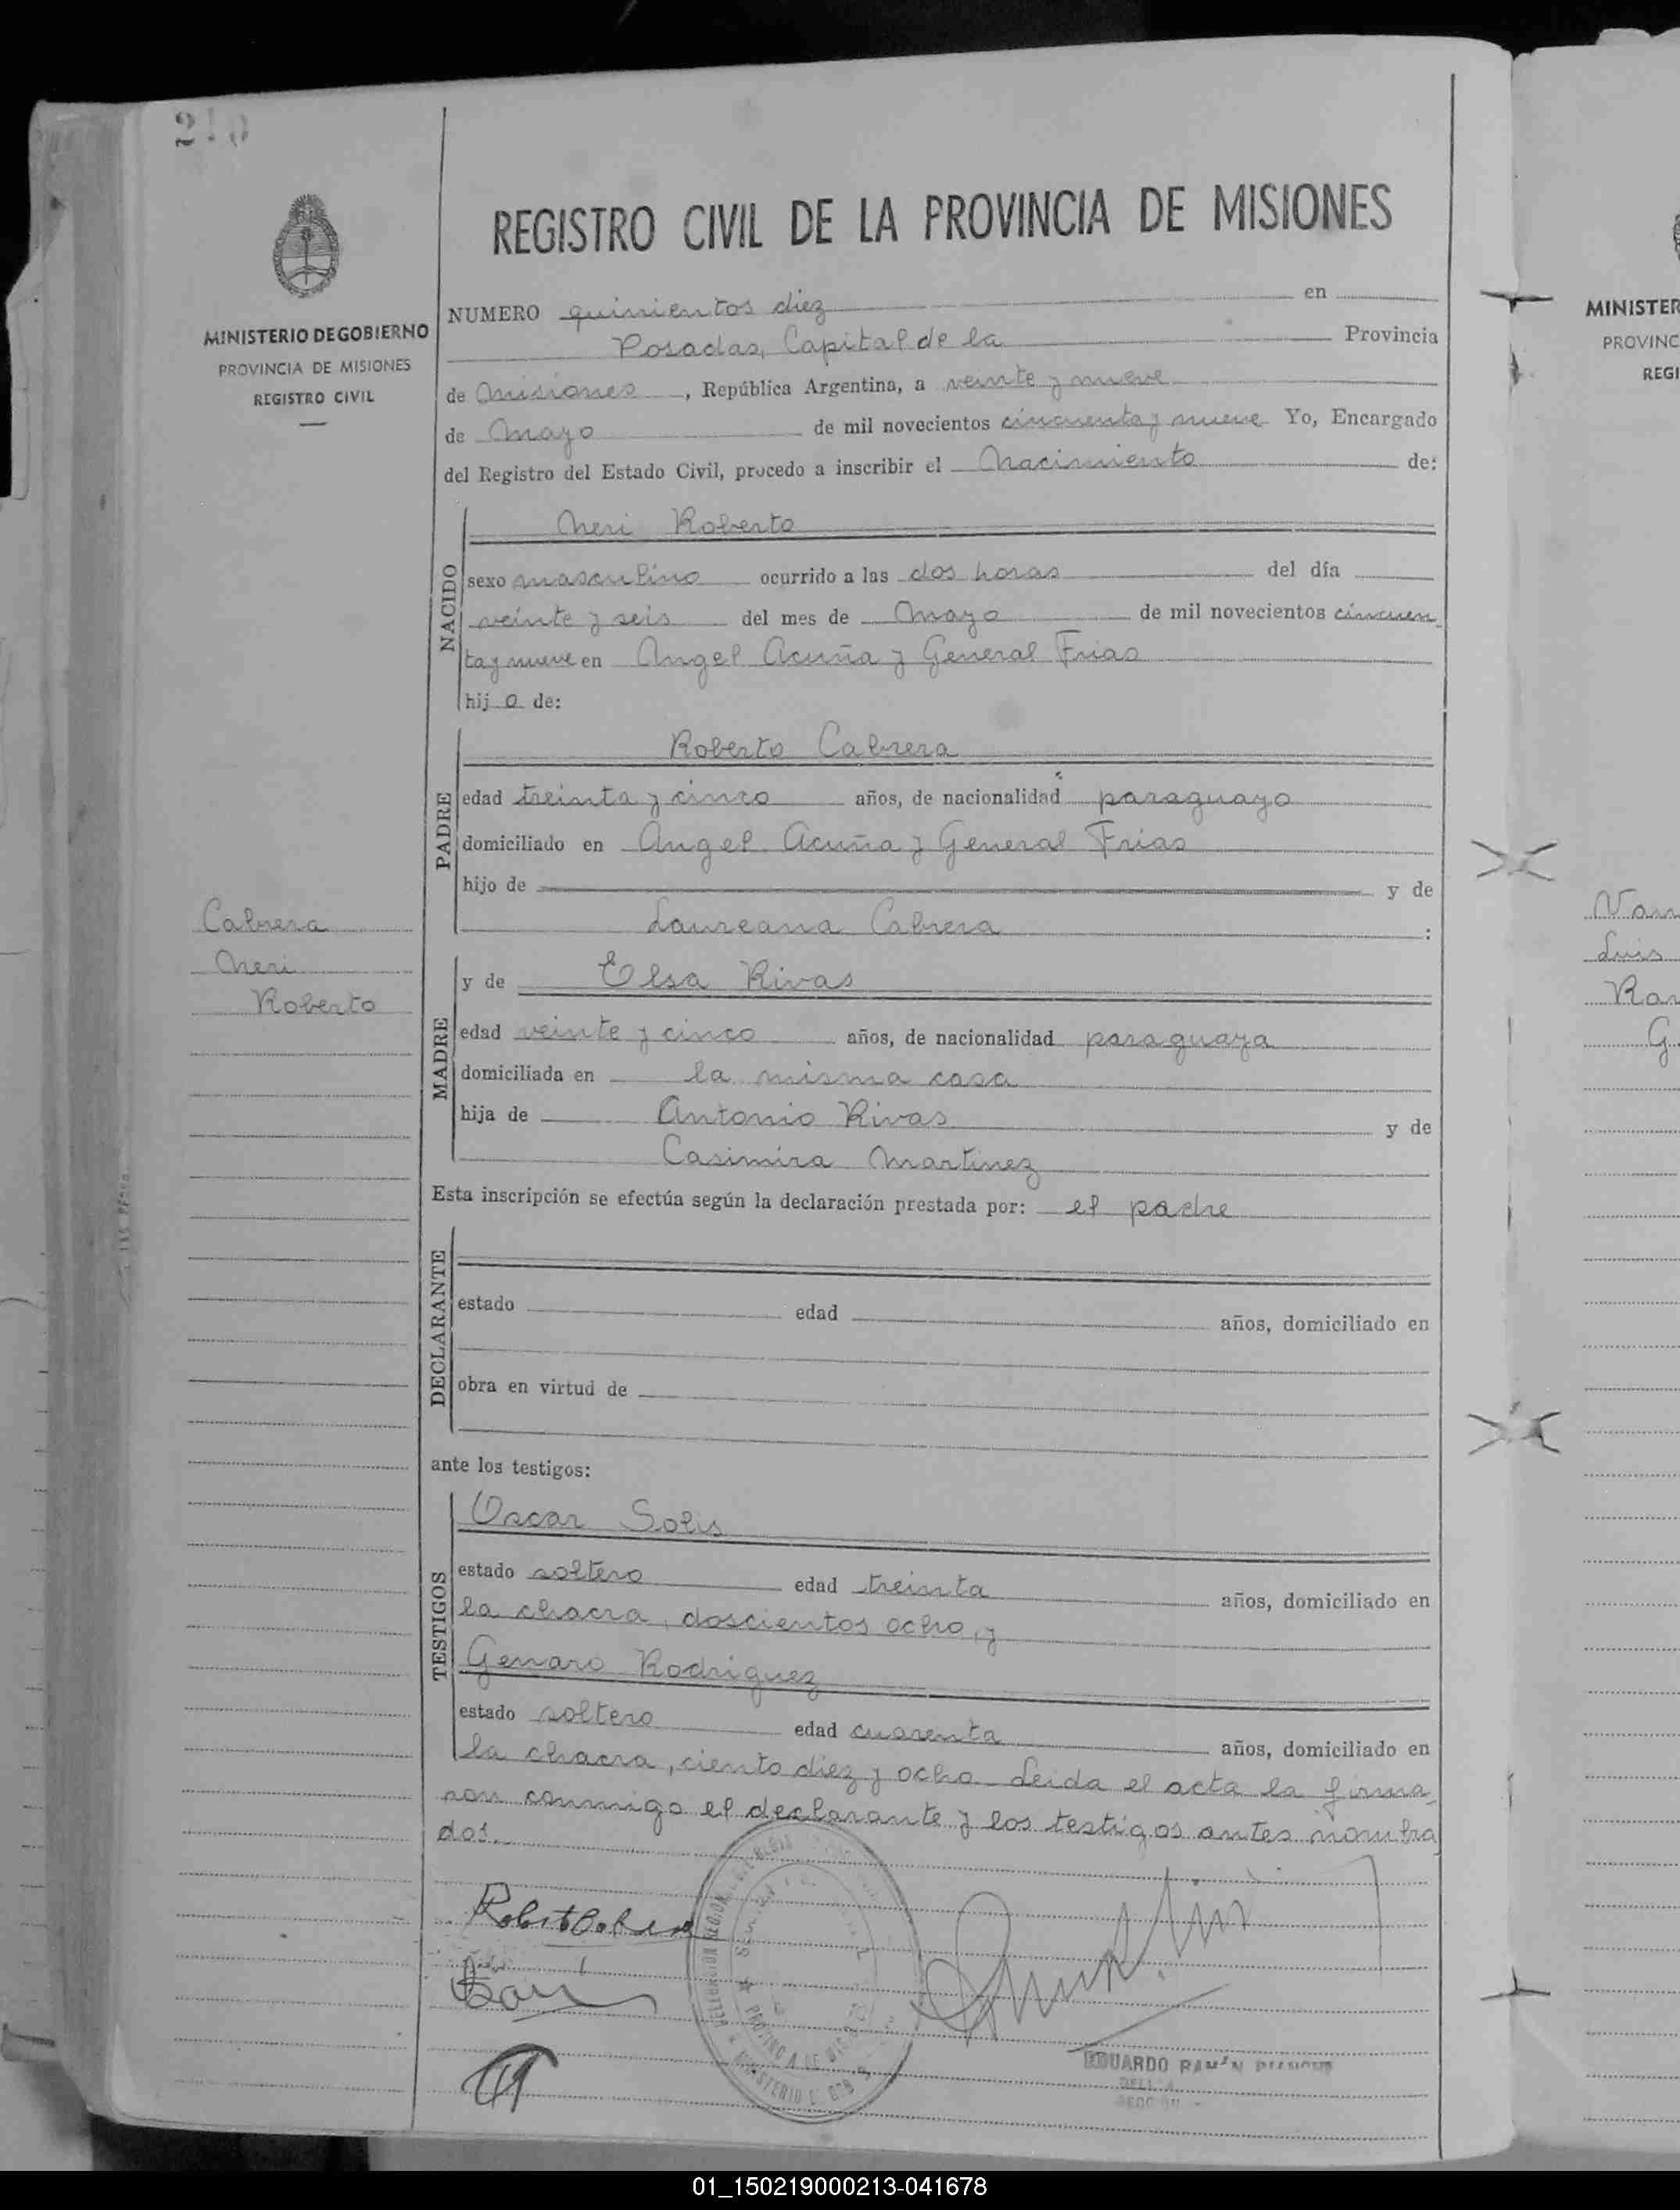 MINISTERIO DE GOBIERNO
PROVINCIA DE MISIONES
REGISTRO CIVIL
Cabrera
Neri
Roberto
REGISTRO CIVIL DE LA PROVINCIA DE MISIONES
NUMERO quinientos diez en
Posadas, Capital de la Provincia
de Misiones, República Argentina, a veinte y nueve
de Mayo de mil novecientos cincuenta y nueve Yo, Encargado
del Registro del Estado Civil, procedo a inscribir el Nacimiento de:
NACIDO
Neri Roberto
sexo masculino ocurrido a las dos horas del día
veinte y seis del mes de Mayo de mil novecientos cincuen
ta y nueve en Angel Acuña y General Frias
hij o de:
PADRE
Roberto Cabrera
edad treinta y cinco años, de nacionalidad paraguayo
domiciliado en Angel Acuña y General Frias
hijo de y de
Laureana Cabrera :
MADRE
y de Elsa Rivas
edad veinte y cinco años, de nacionalidad paraguaya
domiciliada en la misma casa
hija de Antonio Rivas y de
Casimira Martinez
Esta inscripción se efectúa según la declaración prestada por: el padre
DECLARANTE
estado edad años, domiciliado en
obra en virtud de
ante los testigos:
TESTIGOS
Oscar Solis
estado soltero edad treinta años, domiciliado en
la chacra, doscientos ocho, y
Genaro Rodriguez
estado soltero edad cuarenta años, domiciliado en
la chacra, ciento diez y ocho. Leida el acta la firma
ron conmigo el declarante y los testigos antes nombra
dos.
EDUARDO RAMÓN
MINISTER
PROVINC
REGI
Luis
01_150219000213-041678